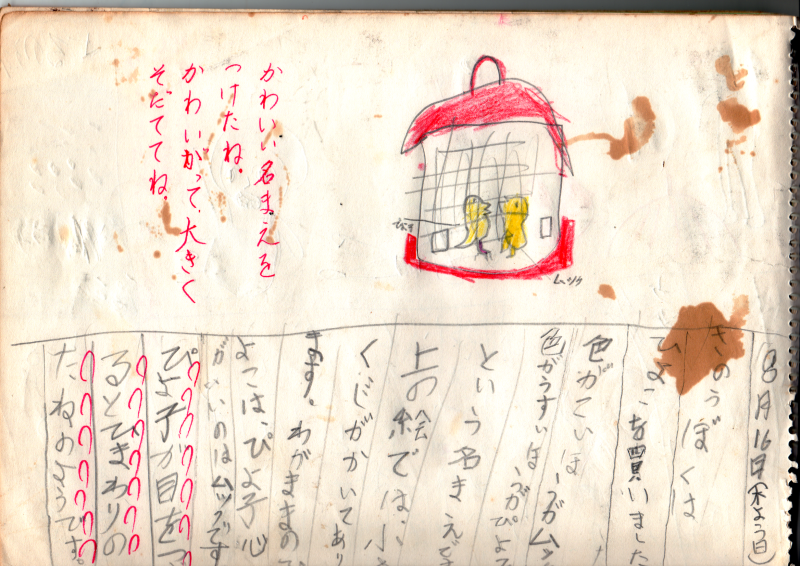 かわいい名まえを
つけたね。
かわいがって、大きく
そだててね。
ムック
8月16日(木よう日)
きのうぼくは
ひよこを買いました
色がこいほーがムッ
色がうすいほーがぴよ
という名まえで
上の絵では、小さ
くじがかいてあり
ます。わがままの
よこは、ぴよ子心
がいいのはムックです
ぴよ子が目をつ
るとてまわりの
たねのようです。